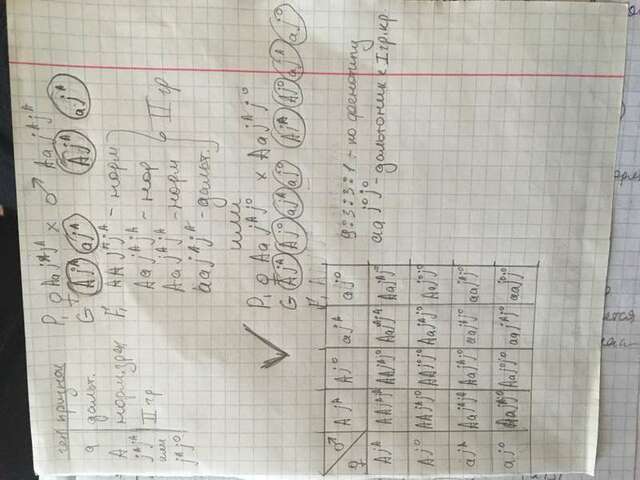 ген признак
a дальт.
A норм.зрен
jᴬjᴬ
или II гр
jᴬj⁰
P₁ ♀ Aa jᴬjᴬ × ♂ Aa jᴬjᴬ
G Ajᴬ ajᴬ Ajᴬ ajᴬ
F₁ AA jᴬjᴬ - норм
Aa jᴬjᴬ - нор
Aa jᴬjᴬ - норм
aa jᴬjᴬ - дальт.
II гр
или
P₁ ♀ Aa jᴬj⁰ × Aa jᴬj⁰
G Ajᴬ Aj⁰ ajᴬ aj⁰ Ajᴬ Aj⁰ ajᴬ aj⁰
♀ ♂ Ajᴬ Aj⁰ ajᴬ aj⁰
Ajᴬ AAjᴬjᴬ AAjᴬj⁰ Aajᴬjᴬ Aajᴬj⁰
Aj⁰ AAjᴬj⁰ AAj⁰j⁰ Aajᴬj⁰ Aaj⁰j⁰
ajᴬ Aajᴬjᴬ Aajᴬj⁰ aajᴬjᴬ aajᴬj⁰
aj⁰ Aajᴬj⁰ Aaj⁰j⁰ aajᴬj⁰ aaj⁰j⁰
9:3:3:1 - по фенотипу
aa j⁰j⁰ - дальтоник с I гр.кр.